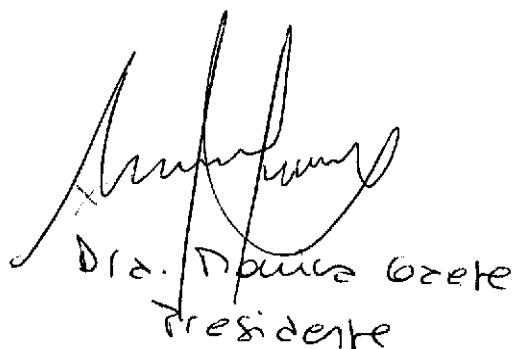 Dra. Mónica Gaete
Presidente